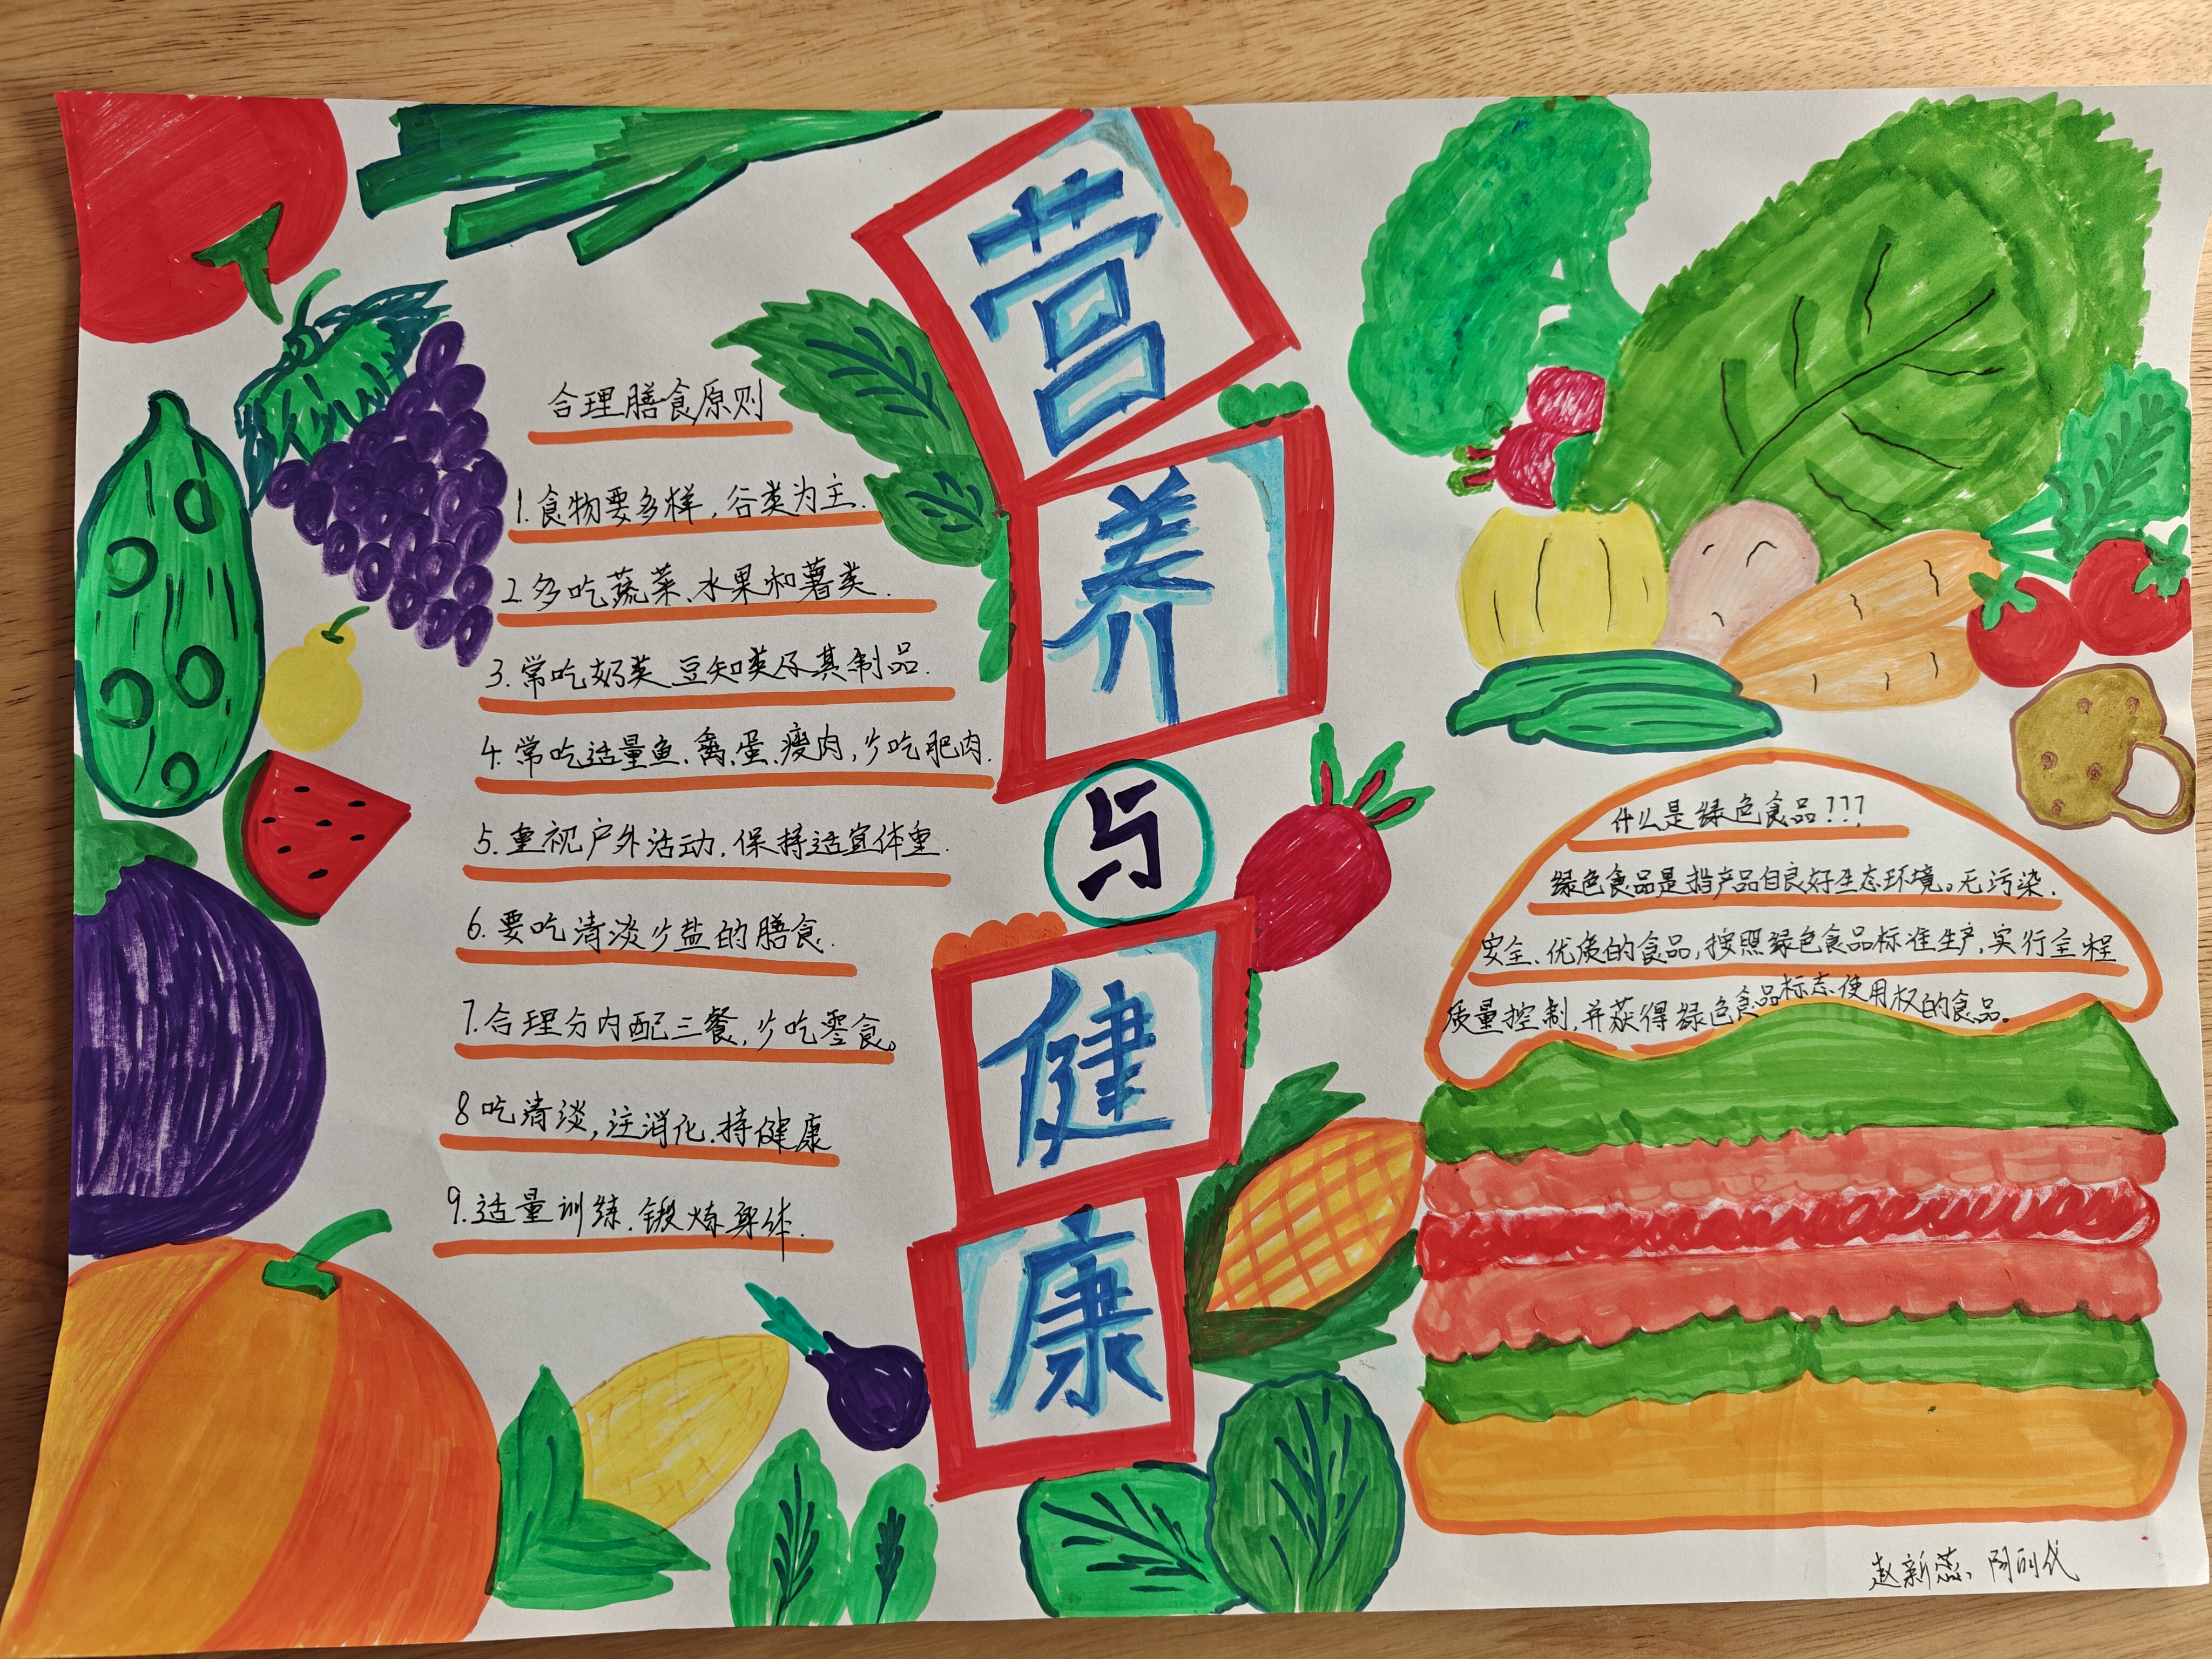 营
养
与
健
康
合理膳食原则
1.食物要多样,谷类为主.
2.多吃蔬菜、水果和薯类.
3.常吃奶类、豆知类及其制品.
4.常吃适量鱼、禽、蛋、瘦肉,少吃肥肉.
5.重视户外活动,保持适宜体重.
6.要吃清淡少盐的膳食.
7.合理分内配三餐,少吃零食。
8吃清淡,注消化.持健康
9.适量训练.锻炼身体.
什么是绿色食品???
绿色食品是指产品自良好生态环境。无污染.
安全、优质的食品,按照绿色食品标准生产,实行全程
质量控制,并获得绿色食品标志使用权的食品。
赵新蕊、